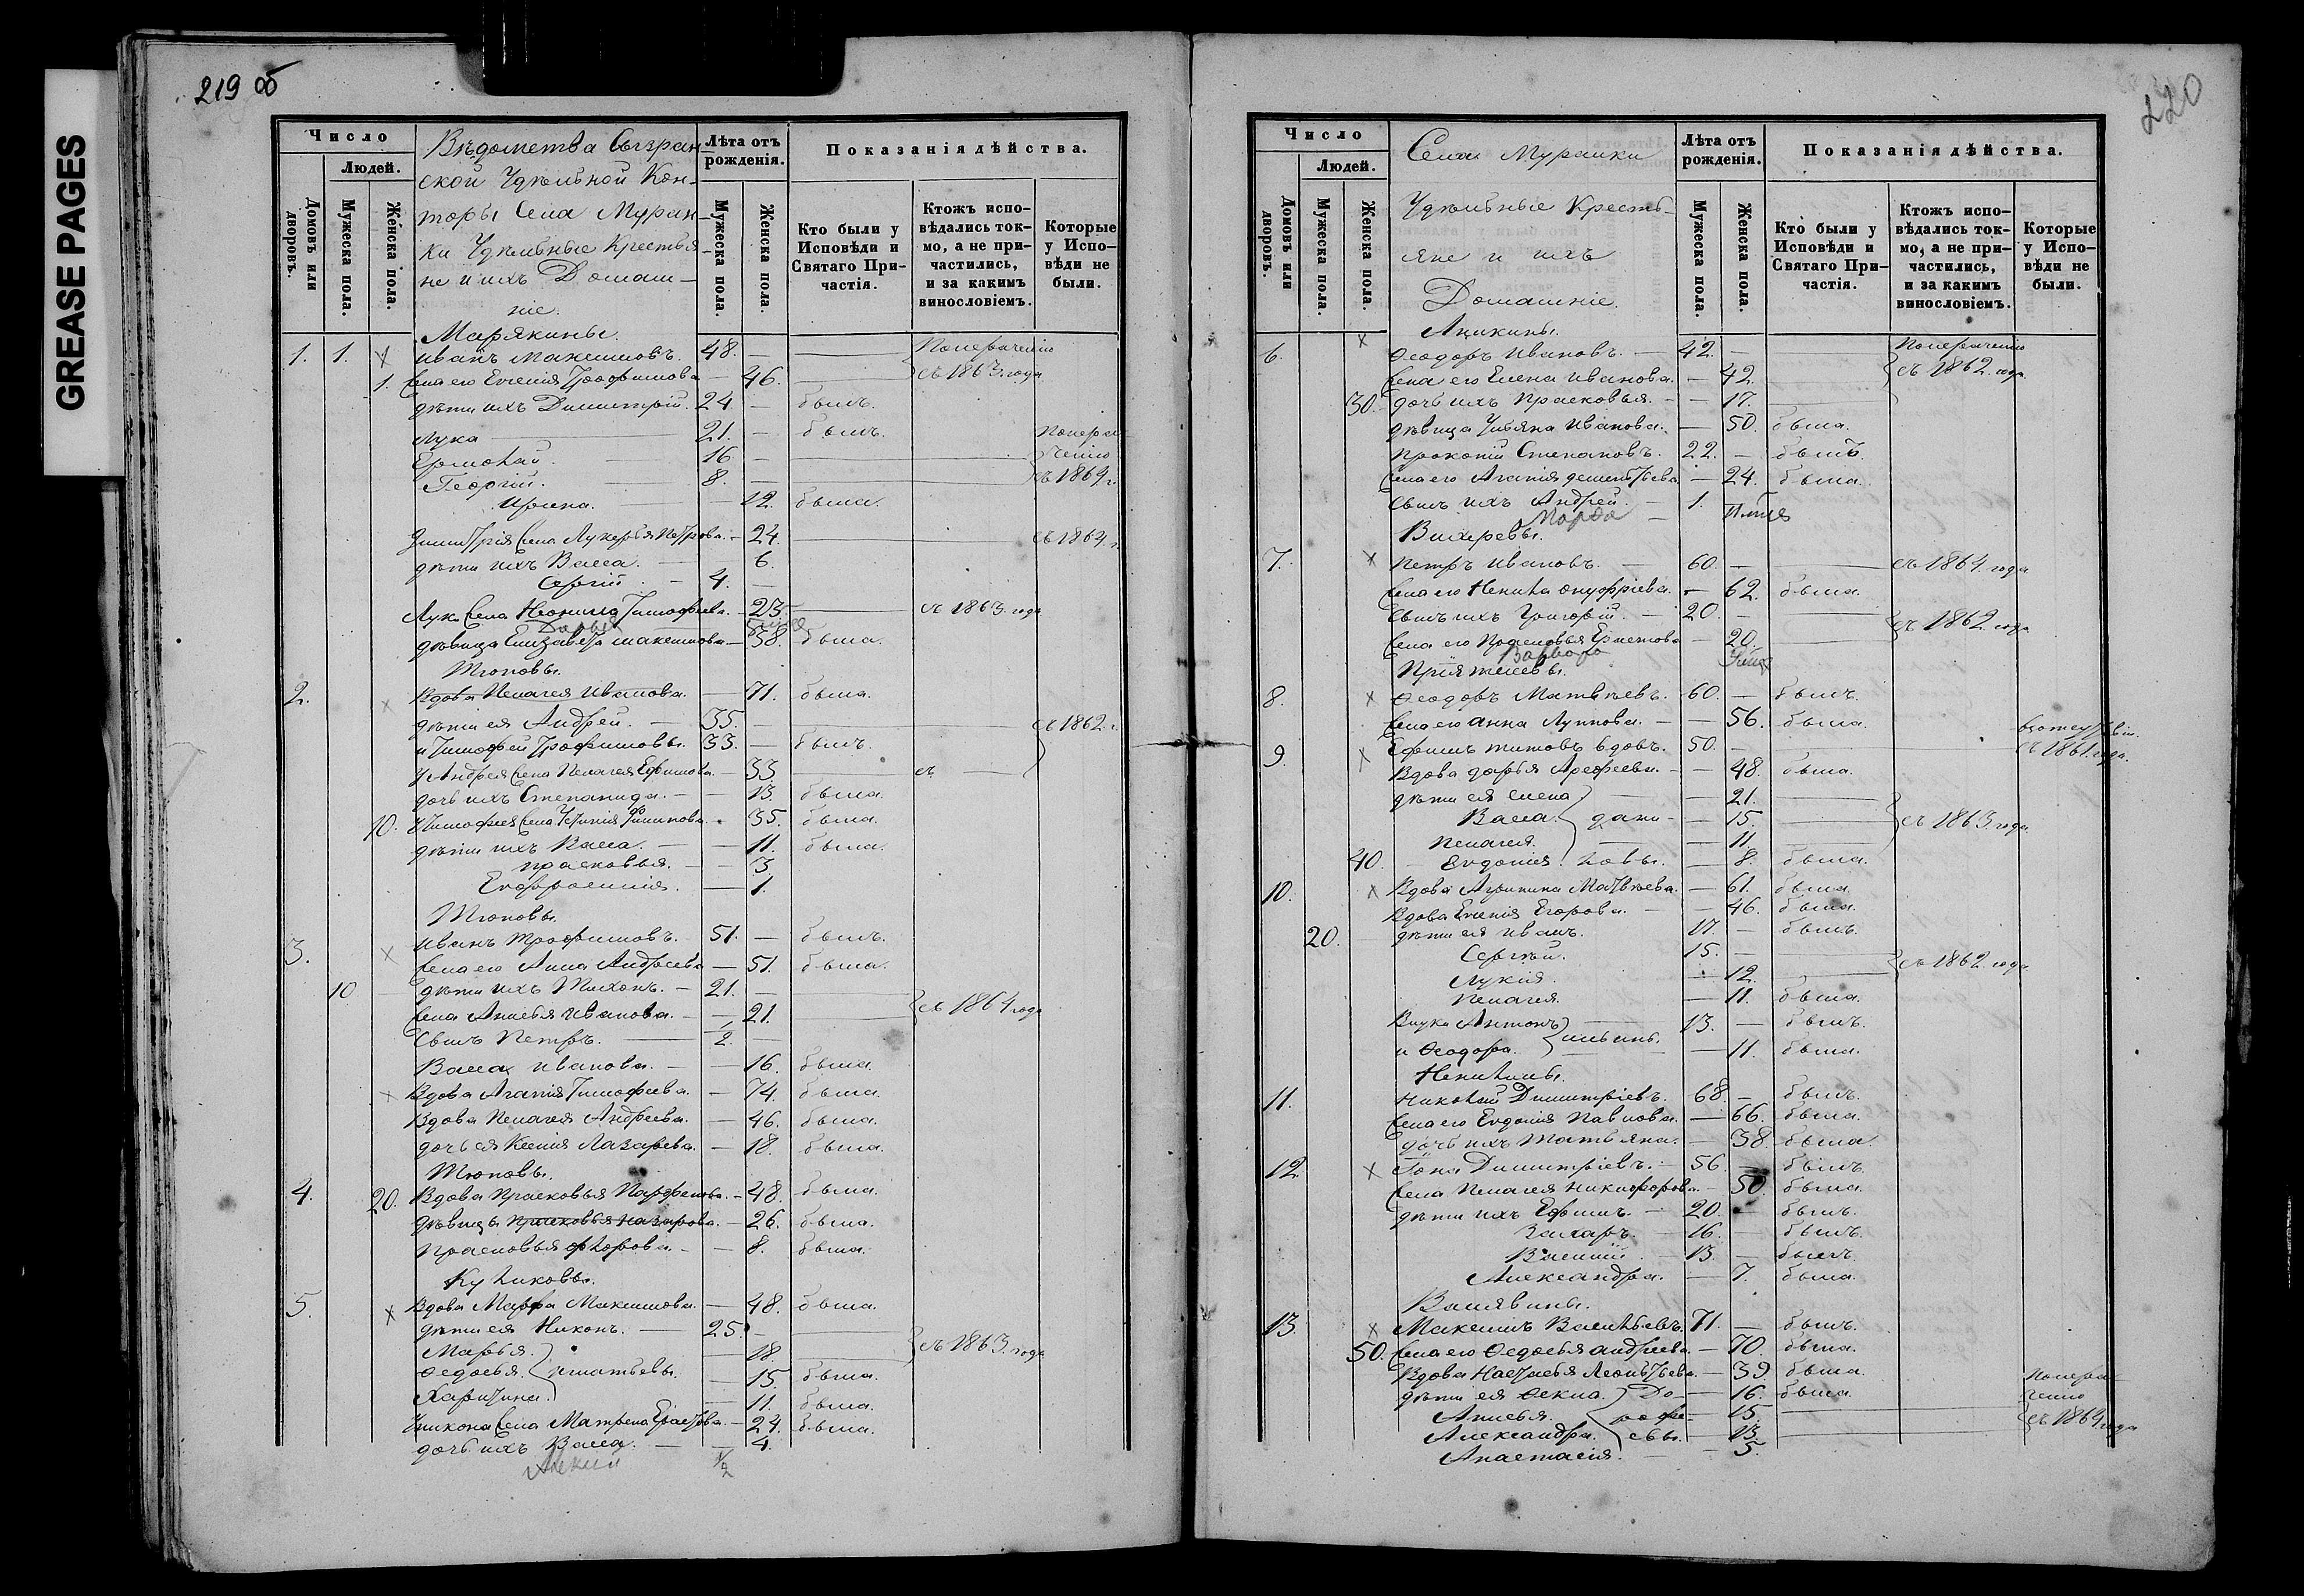 GREASE PAGES
219 об
Число
Людей.
Домовъ или дворовъ.
Мужеска пола.
Женска пола.
Вѣдомства Сызран-
ской Удѣльной Кон-
торы Села Муран-
ки Удѣльные Крестья-
не и ихъ Домаш-
ніе.
Лѣта отъ рожденія.
Мужеска пола.
Женска пола.
Показанія дѣйства.
Кто были у Исповѣди и Святаго При-частія.
Ктожъ испо-вѣдались ток-мо, а не при-частились, и за какимъ винословіемъ.
Которые у Испо-вѣди не были.
Марякины.
1. 1. Иванъ Максимовъ. 48. — Понераченію
1. Жена его Евгенія Трофимова — 46. съ 1863. года
дѣти ихъ Димитрій. 24. — былъ.
Лука 21. — былъ. Понера-
Ермолай. 16. — ченію
Георгій. 8. — съ 1864 г.
Ирина. — 12. была.
Димитрія Жена Лукерья Петрова. — 24. съ 1864. г.
дѣти ихъ Васса. — 6.
Сергій. — 4. —
Луки Жена Неонила Тимофеева. — 23. съ 1863. года
Дарья
дѣвица Елизавета Максимова — 58. была.
Тюповы.
2. Вдова Пелагея Иванова. — 71. была.
дѣти ея Андрей. — 35. — съ 1862 г.
и Тимофей Трофимовы. 33. — былъ.
У Андрея Жена Пелагея Ефимова. — 33 съ —
дочь ихъ Степанида. — 13. была.
10. У Тимофея Жена Устинія Филипова. — 35. была.
дѣти ихъ Васса. — 11. была.
Прасковья. — 3
Евфросинія. — 1.
Тюповы.
3. Иванъ Трофимовъ. 51. — былъ.
Жена его Анна Андреева — 51. была.
10 дѣти ихъ Тихонъ. — 21. —
Жена Анисья Иванова. — 21. съ 1864 года
Сынъ Петръ. 2. —
Васса Иванова. — 16. была.
Вдова Агапія Тимофеева. — 74. была.
Вдова Пелагея Андреева. — 46. была.
дочь ея Ксенія Лазарева. — 18. была.
Тюповы.
4. 20. Вдова Прасковья Парфенова. — 48. была.
дѣвица Прасковья Назарова. — 26. была.
Прасковья Флорова. — 8. была.
Куликовы.
5. Вдова Марфа Максимова. — 48. была.
дѣти ея Никонъ. — 25. — съ 1863. года
Марья. — 18.
Федосья. Игнатьевы. — 15. была.
Харитина. — 11. была.
У Никона Жена Матрена Ерастова. — 24. была.
дочь ихъ Васса. — 4.
220
Число
Людей.
Домовъ или дворовъ.
Мужеска пола.
Женска пола.
Села Муранки
Удѣльные Кресть-
яне и ихъ
Домашніе.
Лѣта отъ рожденія.
Мужеска пола.
Женска пола.
Показанія дѣйства.
Кто были у Исповѣди и Святаго При-частія.
Ктожъ испо-вѣдались ток-мо, а не при-частились, и за какимъ винословіемъ.
Которые у Испо-вѣди не были.
Аникины.
6. Ѳеодоръ Ивановъ. — 42. — Понераченію
Жена его Елена Иванова. — 42. съ 1862. года
30. дочь ихъ Прасковья. — 17.
дѣвица Ульяна Иванова. — 50. была.
Прокопій Степановъ. 22. — былъ.
Жена его Агапія Дементьева — 24. была.
Сынъ ихъ Андрей. — 1.
Марфа
Вихеревы.
7. Петръ Ивановъ. — 60. — съ 1864 года
Жена его Ненила Онуфріева. — 62. была.
Сынъ ихъ Григорій. — 20. — съ 1862 года
Жена его Прасковья Ерастова — 20.
Варвара
Пріятелевы.
8. Ѳеодоръ Матвѣевъ. 60. — былъ.
Жена его Анна Луппова. — 56. была.
9. Ефимъ Титовъ вдовъ. 50. — съ 1861. года.
Вдова Дарья Арефьева. — 48. была.
дѣти ея Елена — 21.
Васса. Дани- — 15. съ 1863. года
Пелагея. — 11.
40. Евдокія. ловы. — 8. была.
10. Вдова Агрипина Матвѣева. — 61. была.
Вдова Евгенія Егорова. — 46. была.
20. дѣти ея Иванъ. 17. — былъ.
Сергѣй. 15. — съ 1862 года
Лукія. — 12.
Пелагея. — 11. была.
Внуки Антонъ 13. — былъ.
и Ѳеодора. Ильины. — 11. была.
Ненилины.
11. Николай Димитріевъ. 68. — былъ.
Жена его Евдокія Павлова. — 66. была.
дочь ихъ Татьяна. — 38. была.
12. Іона Димитріевъ. — 56. — былъ.
Жена Пелагея Никифорова — 50. была.
дѣти ихъ Ефимъ. — 20. — былъ.
Захаръ. — 16. — былъ.
Василій. — 13. — былъ.
Александра. — 7. была.
Валявины.
13. Максимъ Васильевъ. 71. — былъ.
50. Жена его Ѳедосья Андреева — 70. была.
Вдова Настасья Леонтьева. — 39. была. Понера-
дѣти ея Ѳекла. До- — 16. была. ченію
Анисья. рофе- — 15. съ 1864 года
Александра. евы. — 13.
Анастасія. — 5.